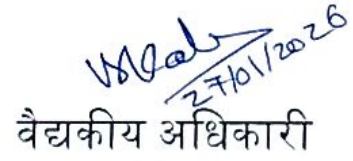 27/01/2026
वैद्यकीय अधिकारी